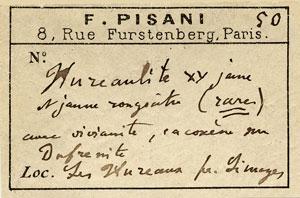 F. PISANI 50
8, Rue Furstenberg, Paris.
No:
Hureaulite XX jaune
& jaune rougeâtre (rare)
avec vivianite, cacoxène sur
Dufrenite
Loc. Les Hureaux pr. Limoges